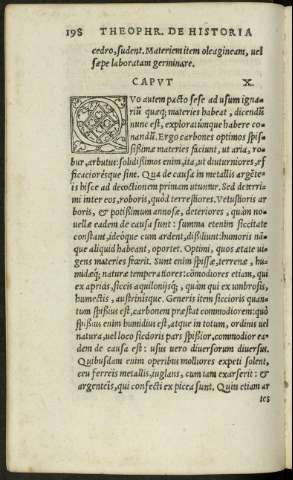 198 THEOPHR. DE HISTORIA
cedro, sudent. Materiem item oleagineam, uel
sæpe laboratam germinare.
CAPVT X.
QVo autem pacto sese ad usum igna
riū quæq; materies habeat, dicendū
nunc est, exploratūmque habere co
nandū. Ergo carbones optimos spis=
sissimæ materies ficiunt, ut aria, ro=
bur, arbutus: solidissimos enim, ita, ut diuturniores, ef
ficacioresque sint. Qua de causa in metallis argēte=
is hisce ad decoctionem primam utuntur. Sed deterri=
mi inter eos, roboris, quòd terrestriores. Vetustioris ar
boris, & potissimùm annosæ, deteriores, quàm no=
uellæ eadem de causa sunt: summa etenim siccitate
constant, ideóque cum ardent, dissiliunt: humoris nā=
que aliquid habeant, oportet. Optimi, quos ætate ui=
gens materies fecerit. Sunt enim spissæ, terrenæ, hu=
midæq; naturæ temperatiores: cōmodiores etiam, qui
ex apricis, siccis aquilonijsq;, quàm qui ex umbrosis,
humectis, austrinisque. Generis item siccioris quan=
tum spissius est, carbonem præstat commodiorem: quò
spissius enim humidius est, atque in totum, ordines uel
natura, uel loco sicciori pars spissior, commodior ea=
dem de causa est: usus uero diuersorum diuersus.
Quibusdam enim operibus molliores expeti solent,
ceu ferreis metallis, iuglans, cum iam exarserit: &
argenteis, qui confecti ex picea sunt. Quin etiam ar
tes